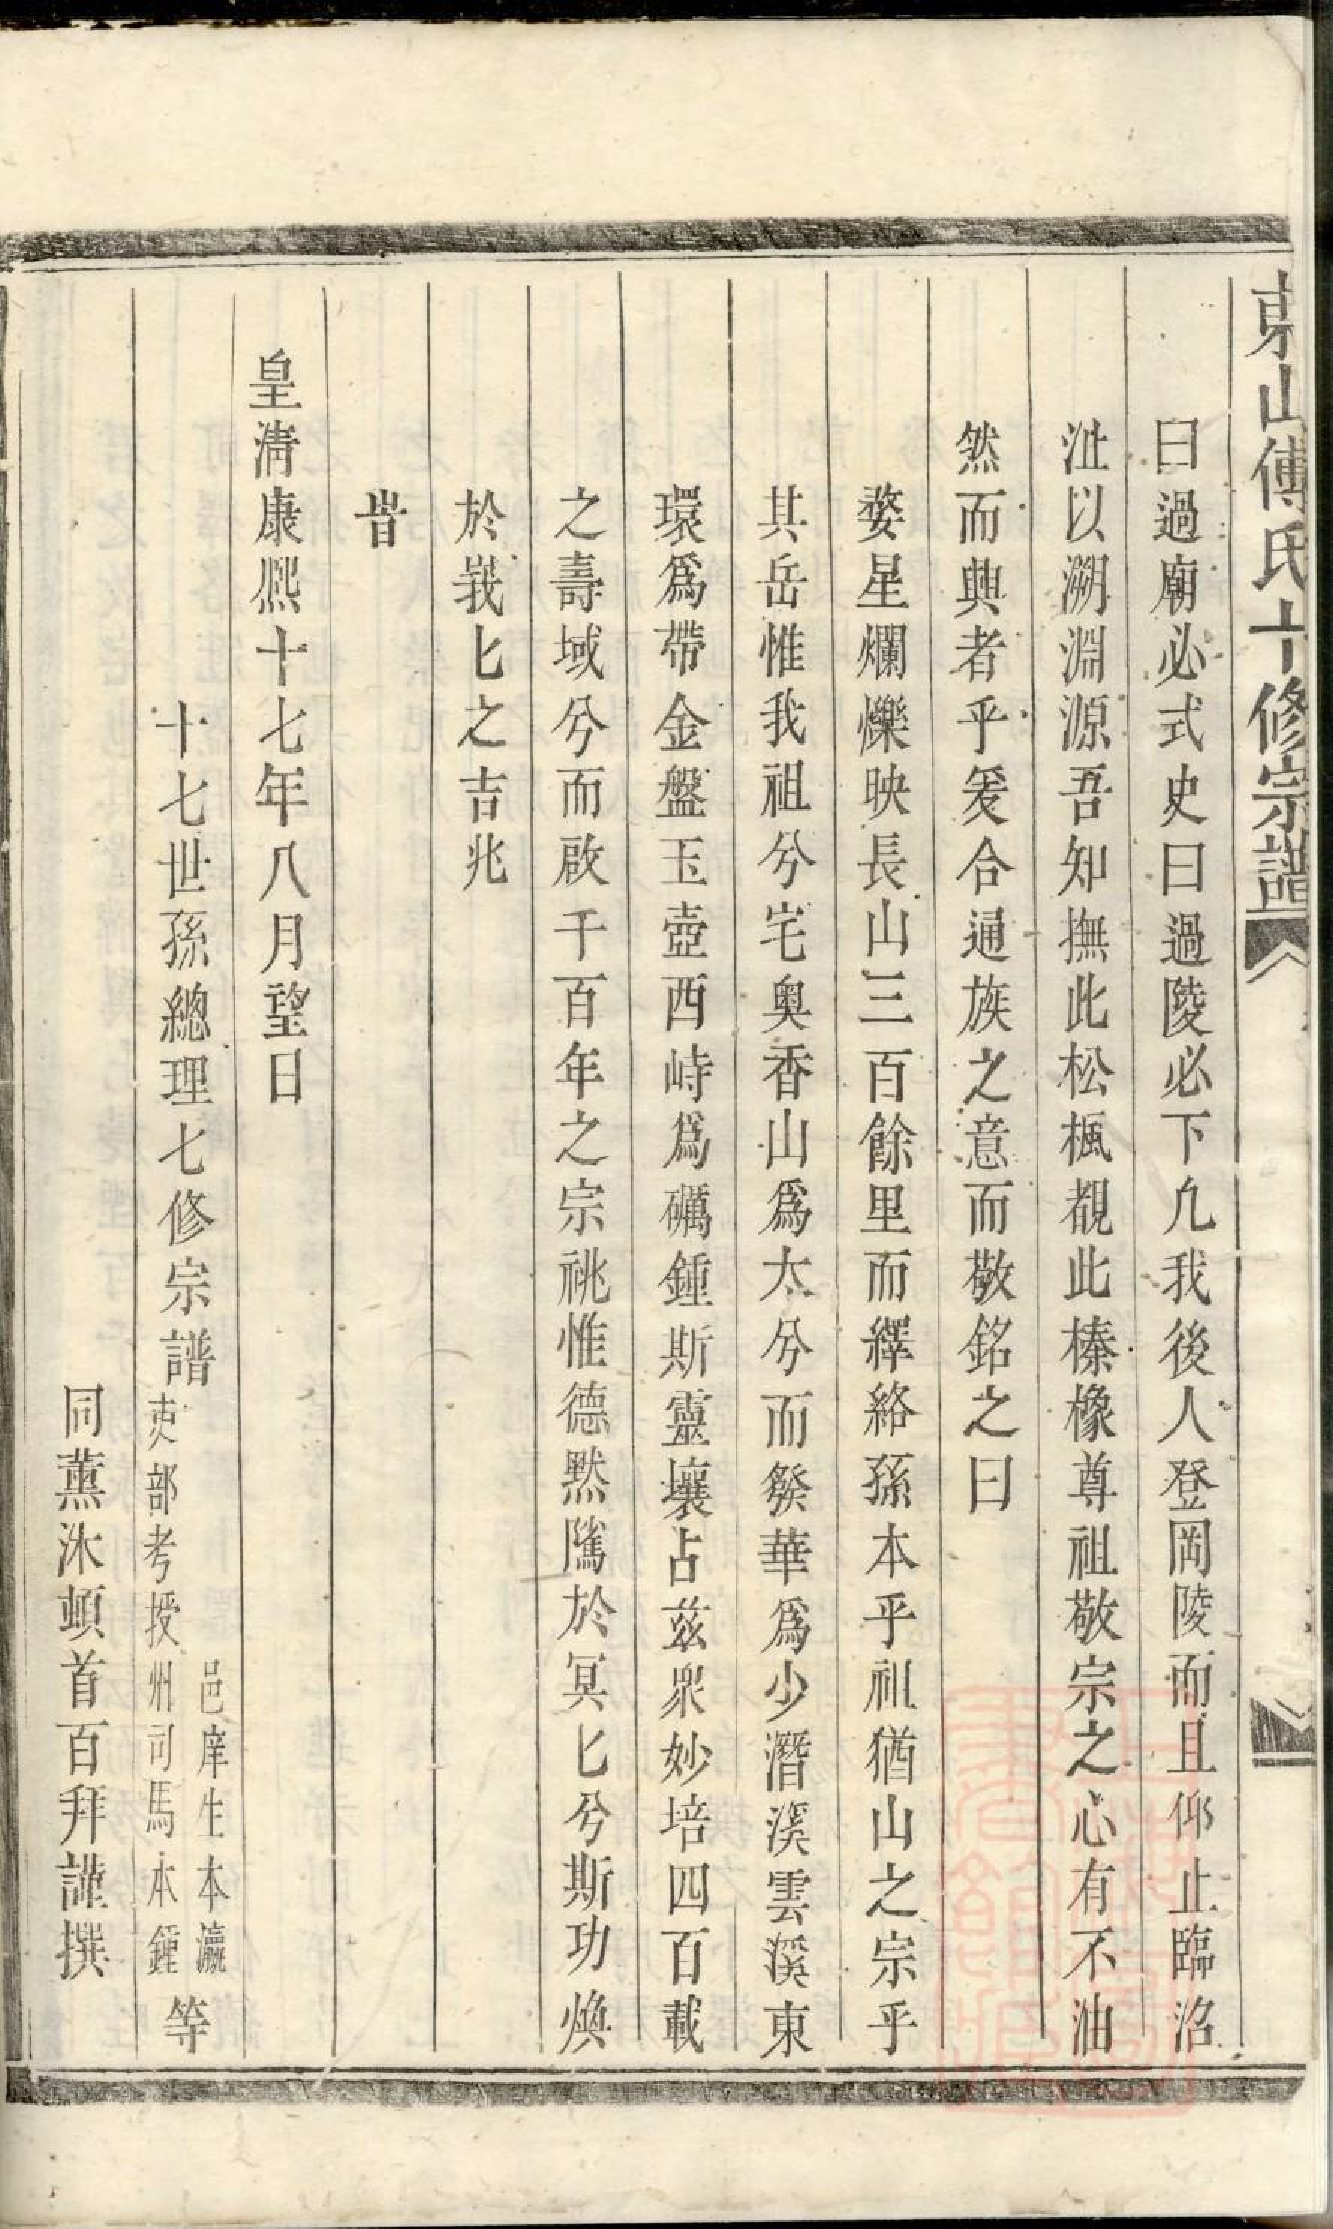 東山傅氏十修宗譜
曰過廟必式史曰過陵必下凢我後人登岡陵而且仰止臨洛
沚以溯淵源吾知撫此松楓覩此榛橡尊祖敬宗之心有不油
然而興者乎爰合通族之意而敬銘之曰
婺星爛爍映長山三百餘里而繹絡孫本乎祖猶山之宗乎
其岳惟我祖兮宅奥香山爲太兮而發華爲少潛溪雲溪東
環爲帶金盤玉壺西峙爲礪鍾斯靈壤占兹衆妙培四百載
之壽域兮而啟千百年之宗祧惟德黙隲於冥匕兮斯功煥
於峩匕之吉兆
旹
皇淸康熙十七年八月望日
十七世孫總理七修宗譜邑庠生本瀛吏部考授州司馬本鍾等
同薰沐頓首百拜謹撰